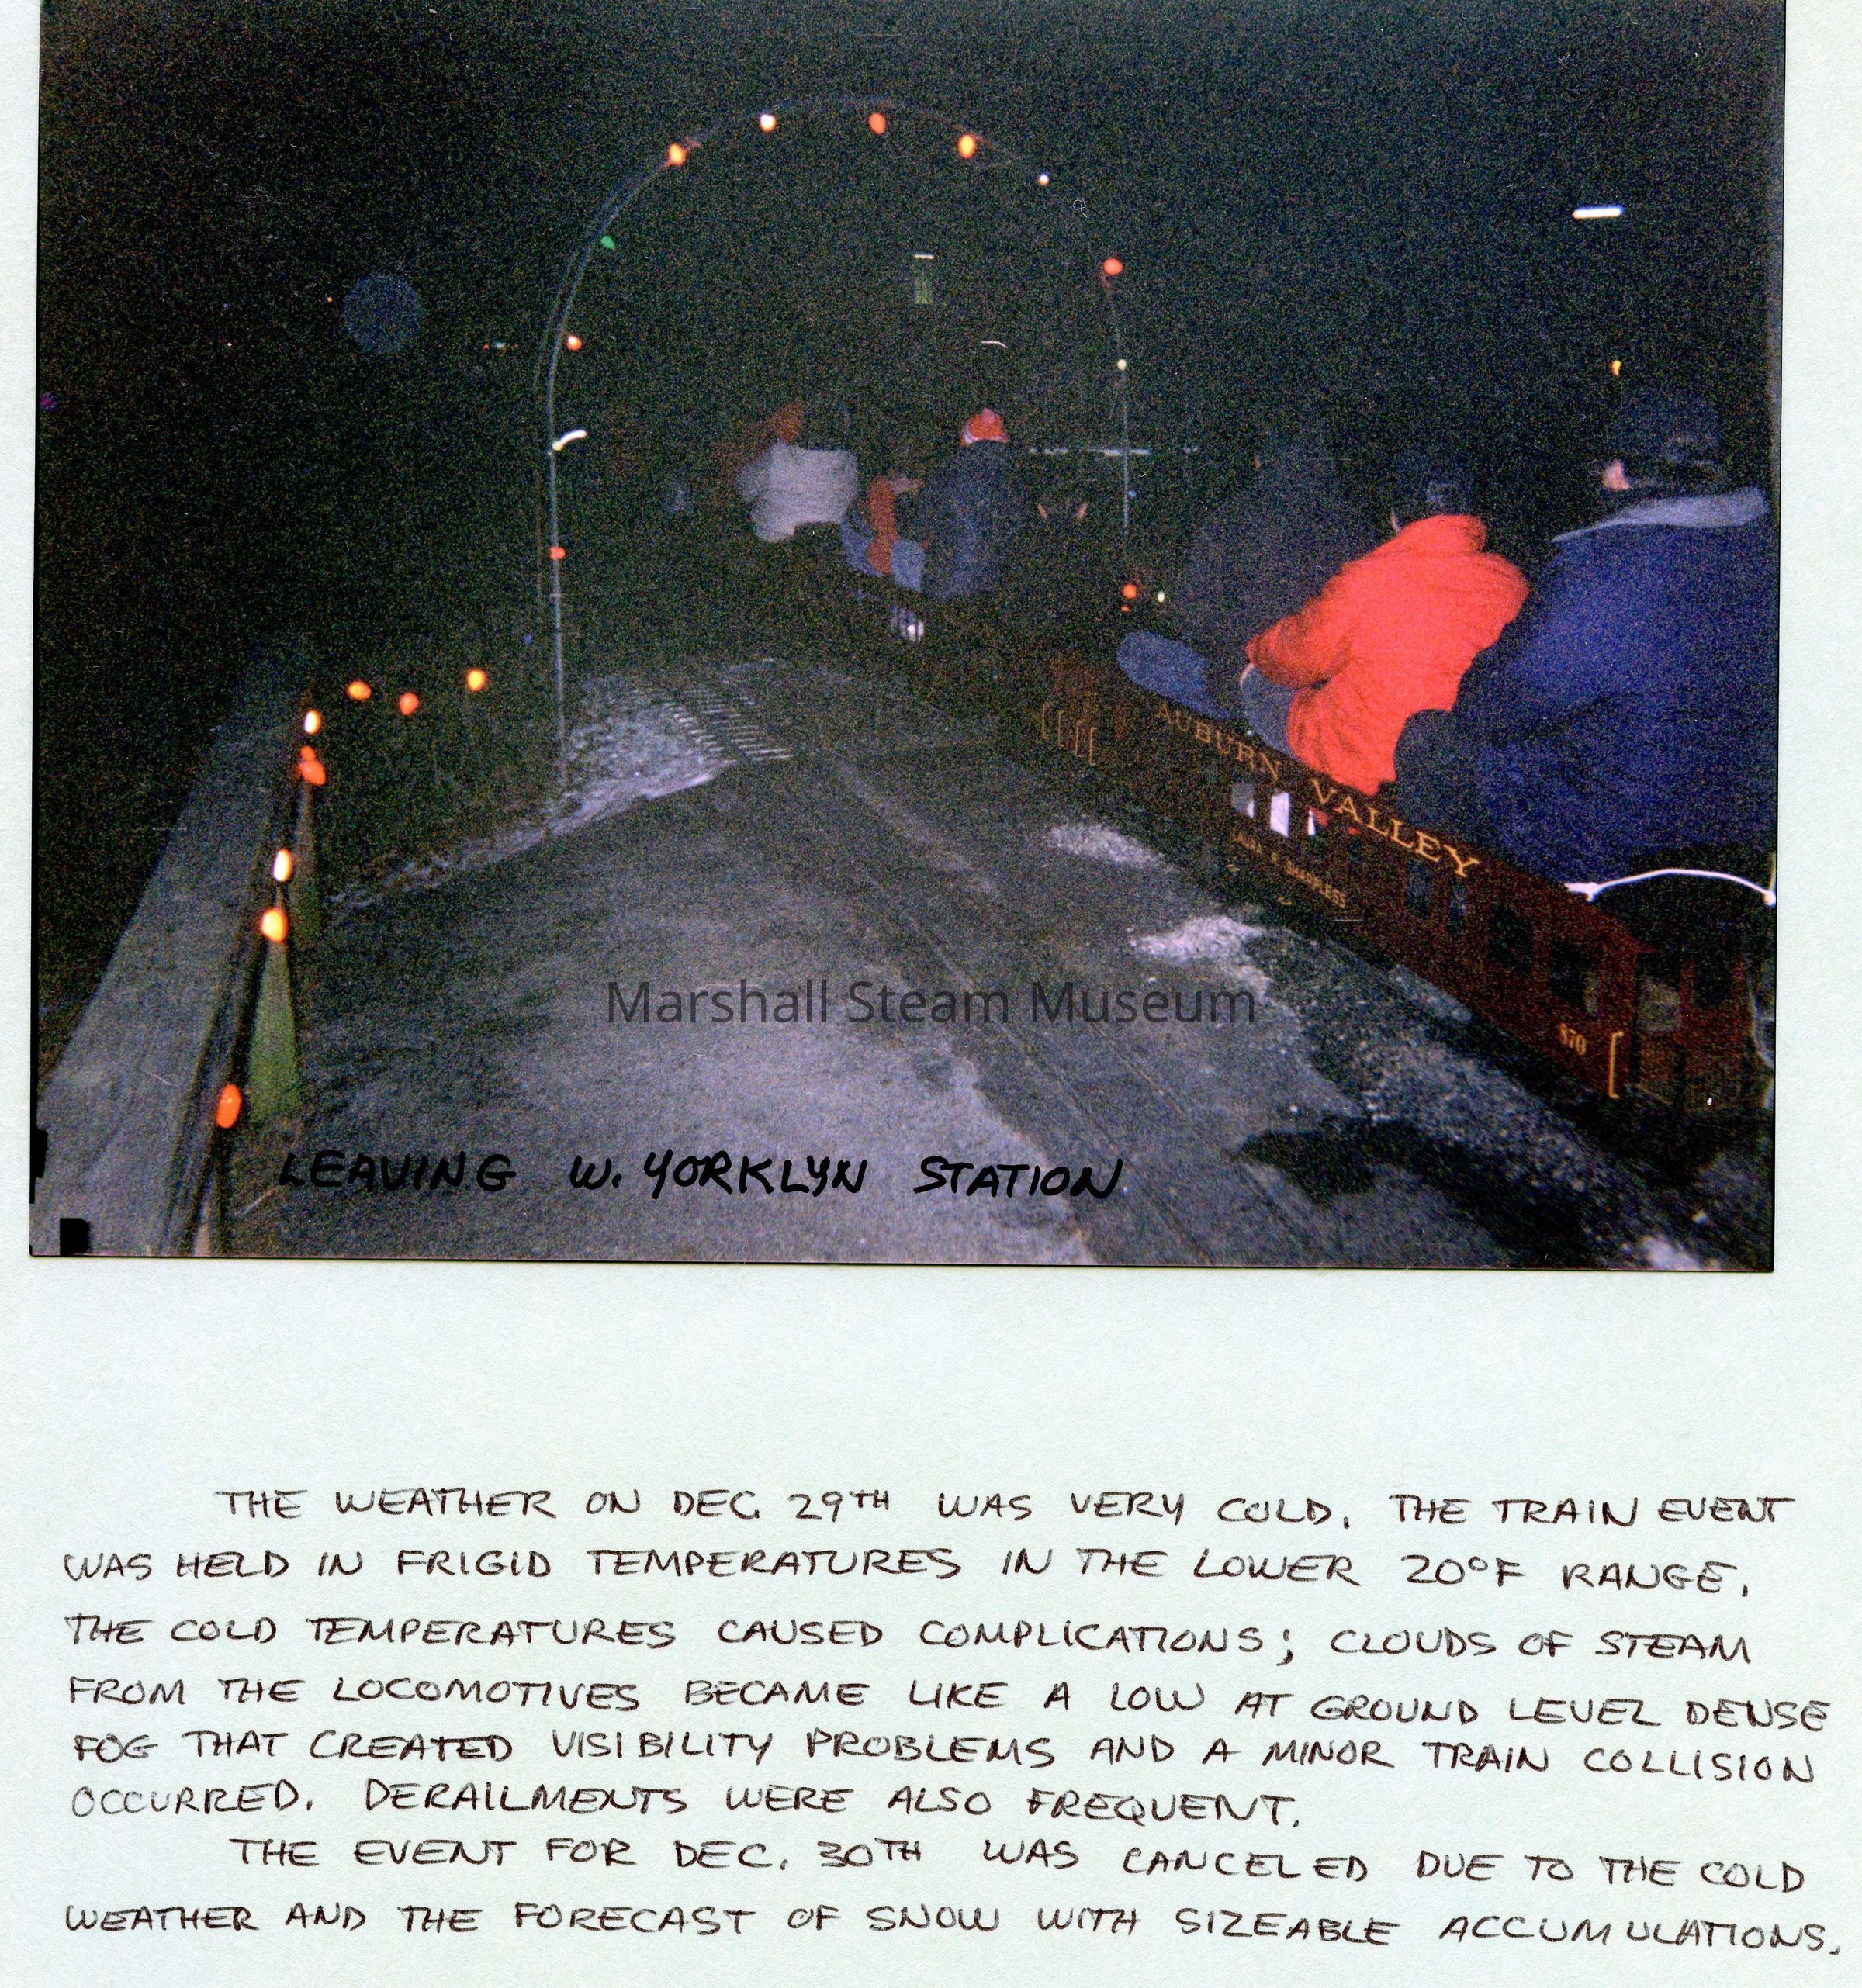 AUBURN VALLEY
570
Marshall Steam Museum
LEAVING W. YORKLYN STATION
THE WEATHER ON DEC. 29TH WAS VERY COLD. THE TRAIN EVENT
WAS HELD IN FRIGID TEMPERATURES IN THE LOWER 20°F RANGE.
THE COLD TEMPERATURES CAUSED COMPLICATIONS; CLOUDS OF STEAM
FROM THE LOCOMOTIVES BECAME LIKE A LOW AT GROUND LEVEL DENSE
FOG THAT CREATED VISIBILITY PROBLEMS AND A MINOR TRAIN COLLISION
OCCURRED. DERAILMENTS WERE ALSO FREQUENT.
THE EVENT FOR DEC. 30TH WAS CANCELED DUE TO THE COLD
WEATHER AND THE FORECAST OF SNOW WITH SIZEABLE ACCUMULATIONS.